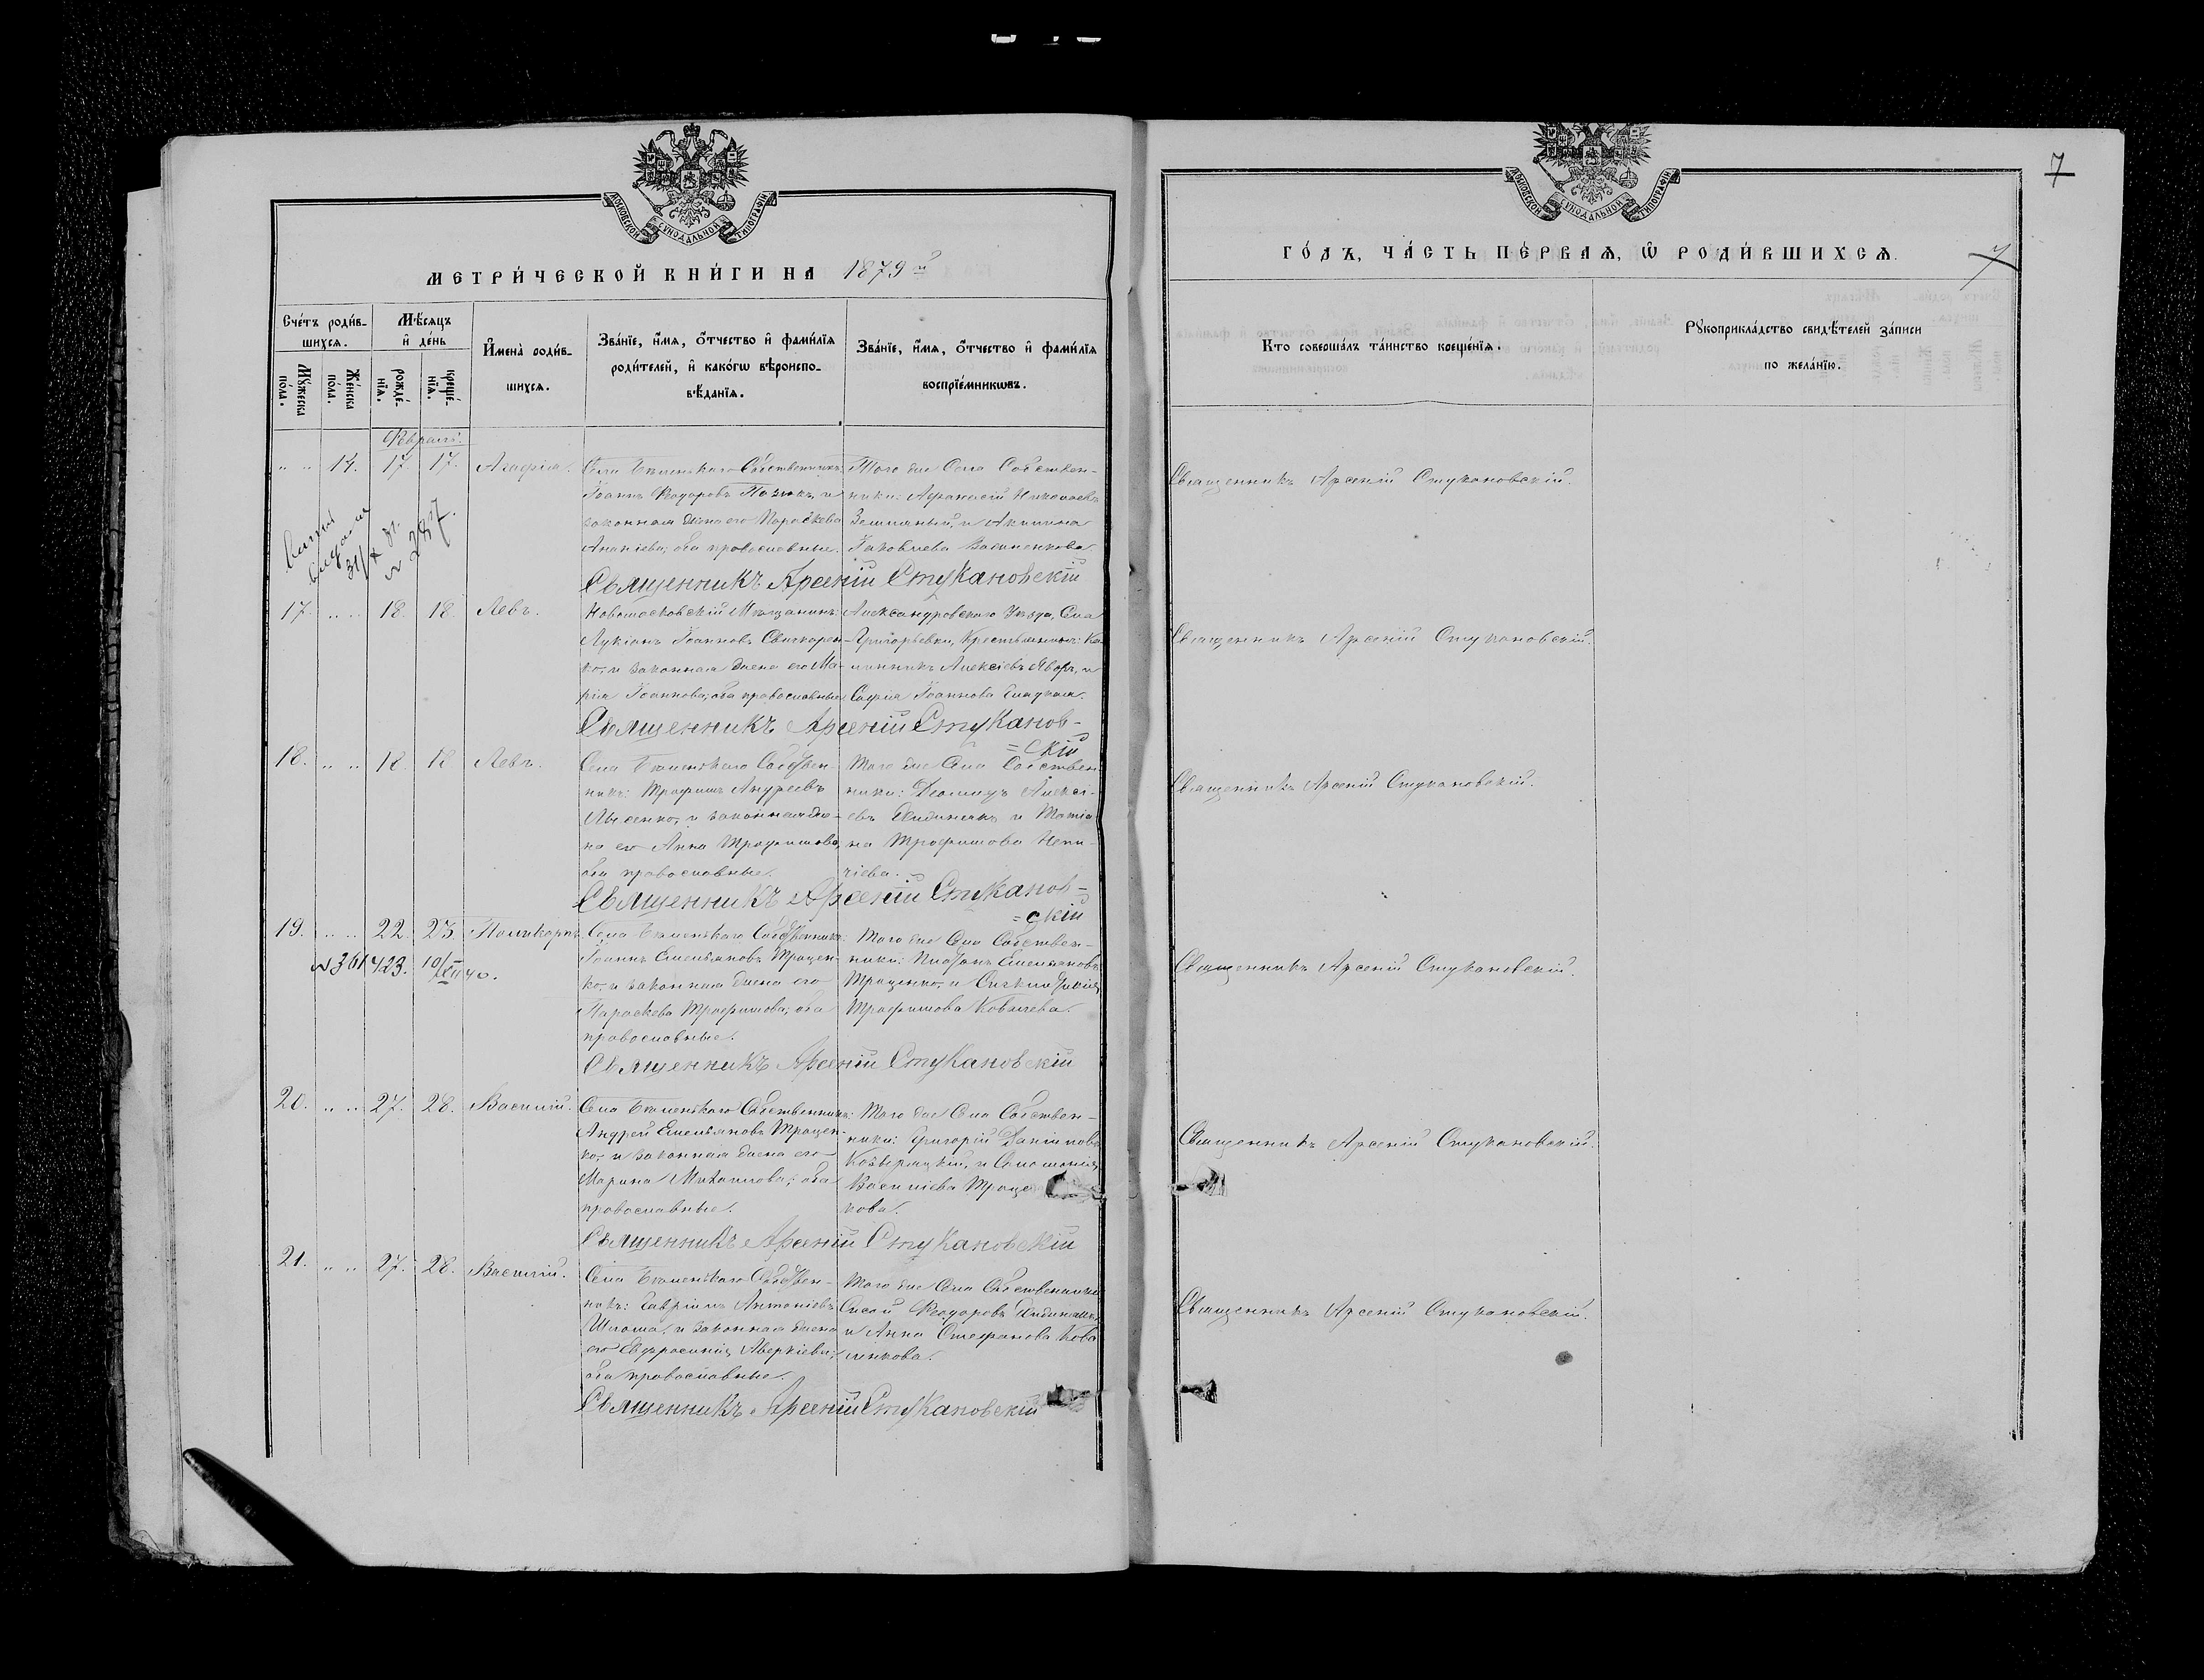 МОСКОВСКОЙ СѴНОДАЛЬНОЙ ТИПОГРАФІИ
МЕТРИ́ЧЕСКОЙ КНИ́ГИ НА 1879 й
Сче́тъ роди́в-
шихсѧ.
Мѣ́сѧцъ
и҆ де́нь
Мꙋ́жеска
по́ла.
Же́нска
по́ла.
рожде́-
нїѧ.
креще́-
нїѧ.
И҆мена̀ роди́в-
шихсѧ.
Зва́нїе, и҆́мѧ, о҆́тчество и҆ фами́лїѧ
роди́телей, и҆ како́гѡ вѣроиспо-
вѣ́данїѧ.
Зва́нїе, и҆́мѧ, о҆́тчество и҆ фами́лїѧ
воспрїе́мникѡвъ.
Февраль.
" " 14. 17 17. Агафія.
Села Собственникъ
Іоаннъ Ѳеодоровъ и
законная жена его Параскева
Ананіева; оба православные.
Того же Села Собствен-
ники: Афанасій Николаевъ
и Акилина
Іаковлева
№ 287.
Священникъ Арсеній Стукановскій
17. " " 18. 18. Левъ.
Новомосковскій Мѣщанинъ:
Лукіанъ Іоанновъ
ко, и законная жена его Ма-
рія Іоаннова; оба православные
Александровскаго Уѣзда, Села
Григорьевки, Крестьянинъ: Ка-
линникъ Алексіевъ Яворъ, и
Софія Іоаннова
Священникъ Арсеній Стуканов-
=скій
18. " " 18. 18 Левъ.
Села Собствен-
никъ: Трофимъ Андреевъ
Лысенко, и законная же-
на его Анна Трофимова,
оба православные.
Того же Села Собствен-
ники: Алексі-
евъ и Татіа-
на Трофимова
чіева.
Священникъ Арсеній Стуканов-
=скій
19. " " 22. 23. Поликарпъ.
№ 361423. 10/XII 40.
Села Собственникъ:
Іоаннъ Емельяновъ Троцен-
ко, и законная жена его
Параскева Трофимова; оба
православные.
Того же Села Собствен-
ники: Платонъ Емельяновъ
Троценко, и
Трофимова Ковалева.
Священникъ Арсеній Стукановскій
20. " " 27. 28. Василій.
Села Собственникъ:
Андрей Емельяновъ Троцен-
ко, и законная жена его
Марина Михаилова; оба
православные.
Того же Села Собствен-
ники: Григорій Даніиловъ
и
Василіева Троце
кова.
Священникъ Арсеній Стукановскій
21. " " 27. 28. Василій.
Села Собствен-
никъ: Гавріилъ Антоніевъ
и законная жена
его Евфросинія Аверкіева;
оба православные.
Того же Села Собственники
Сисой Ѳеодоровъ
и Анна Стефанова Кова
ленкова.
Священникъ Арсеній Стукановскій
7
МОСКОВСКОЙ СѴНОДАЛЬНОЙ ТИПОГРАФІИ
ГО́ДЪ, ЧА́СТЬ ПЕ́РВАѦ, Ѡ҆ РОДИ́ВШИХСѦ.
7
Кто соверша́лъ та́инство креще́нїѧ.
Рꙋкоприкла́дство свидѣ́телей за́писи
по жела́нїю.
Священникъ Арсеній Стукановскій.
Священникъ Арсеній Стукановскій.
Священникъ Арсеній Стукановскій.
Священникъ Арсеній Стукановскій.
Священникъ Арсеній Стукановскій.
Священникъ Арсеній Стукановскій.